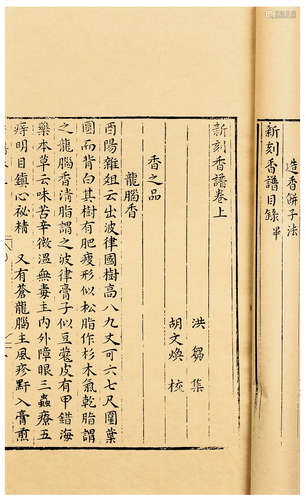 造香餅子法
新刻香譜目錄畢
新刻香譜卷上
洪芻集
胡文煥校
香之品
龍腦香
酉陽雜俎云出波律國樹高八九丈可六七尺圍葉
圓而背白其樹有肥瘦形似松脂作杉木氣乾脂謂
之龍腦香清脂謂之波律膏子似豆蔻皮有甲錯海
藥本草云味苦辛微溫無毒主內外障眼三蟲療五
痔明目鎮心祕精 又有蒼龍腦主風疹䵟入膏煎